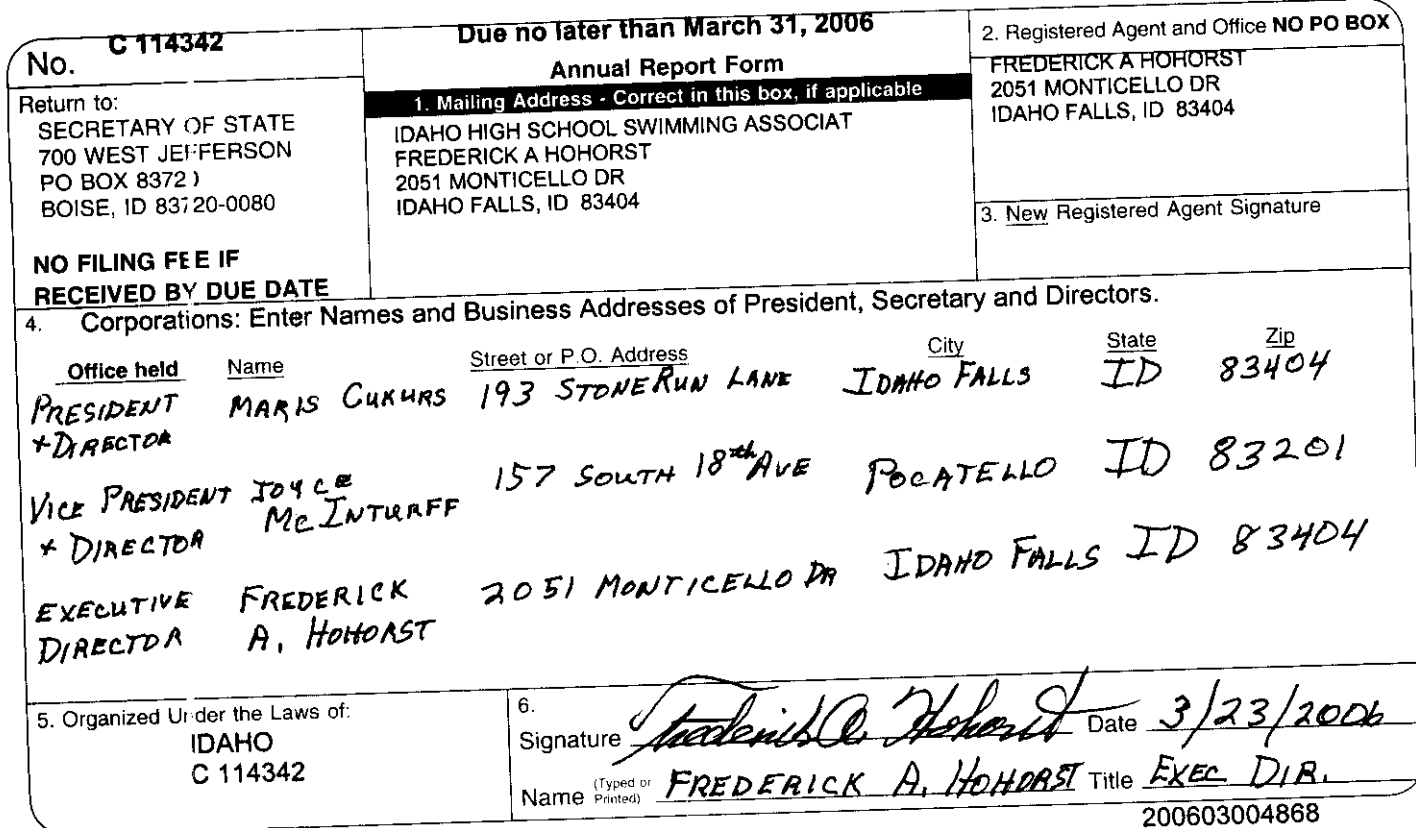 No. C 114342
Return to:
SECRETARY OF STATE
700 WEST JEFFERSON
PO BOX 8372
BOISE, ID 83720-0080
NO FILING FEE IF
RECEIVED BY DUE DATE
Due no later than March 31, 2006
Annual Report Form
1. Mailing Address - Correct in this box, if applicable
IDAHO HIGH SCHOOL SWIMMING ASSOCIAT
FREDERICK A HOHORST
2051 MONTICELLO DR
IDAHO FALLS, ID 83404
2. Registered Agent and Office NO PO BOX
FREDERICK A HOHORST
2051 MONTICELLO DR
IDAHO FALLS, ID 83404
3. New Registered Agent Signature
4. Corporations: Enter Names and Business Addresses of President, Secretary and Directors.
Office held Name Street or P.O. Address City State Zip
PRESIDENT MARIS CUKURS 193 STONERUN LANE IDAHO FALLS ID 83404
+ DIRECTOR
VICE PRESIDENT JOYCE 157 SOUTH 18th AVE POCATELLO ID 83201
+ DIRECTOR McINTURFF
EXECUTIVE FREDERICK 2051 MONTICELLO DR IDAHO FALLS ID 83404
DIRECTOR A. HOHORST
5. Organized Under the Laws of:
IDAHO
C 114342
6.
Signature Frederick A. Hohorst Date 3/23/2006
Name (Typed or Printed) FREDERICK A. HOHORST Title EXEC DIR.
200603004868